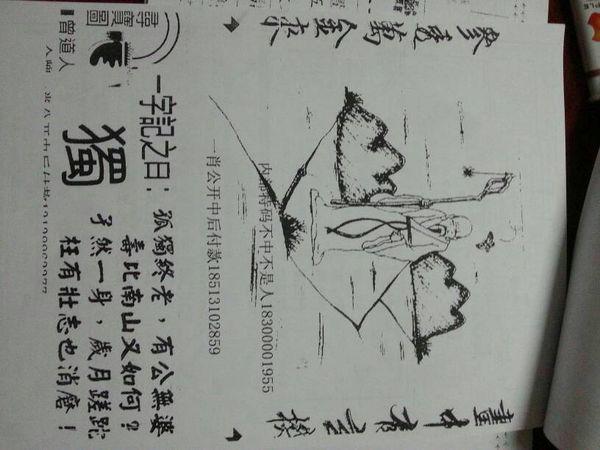 尋寶圖
曾道人
一字記之曰：
獨
孤獨終老，有公無婆
壽比南山又如何？
孑然一身，歲月蹉跎
枉有壯志也消磨！
畫中有玄機
參透萬金來
内部特码不中不是人18300001955
一肖公开中后付款18513102859